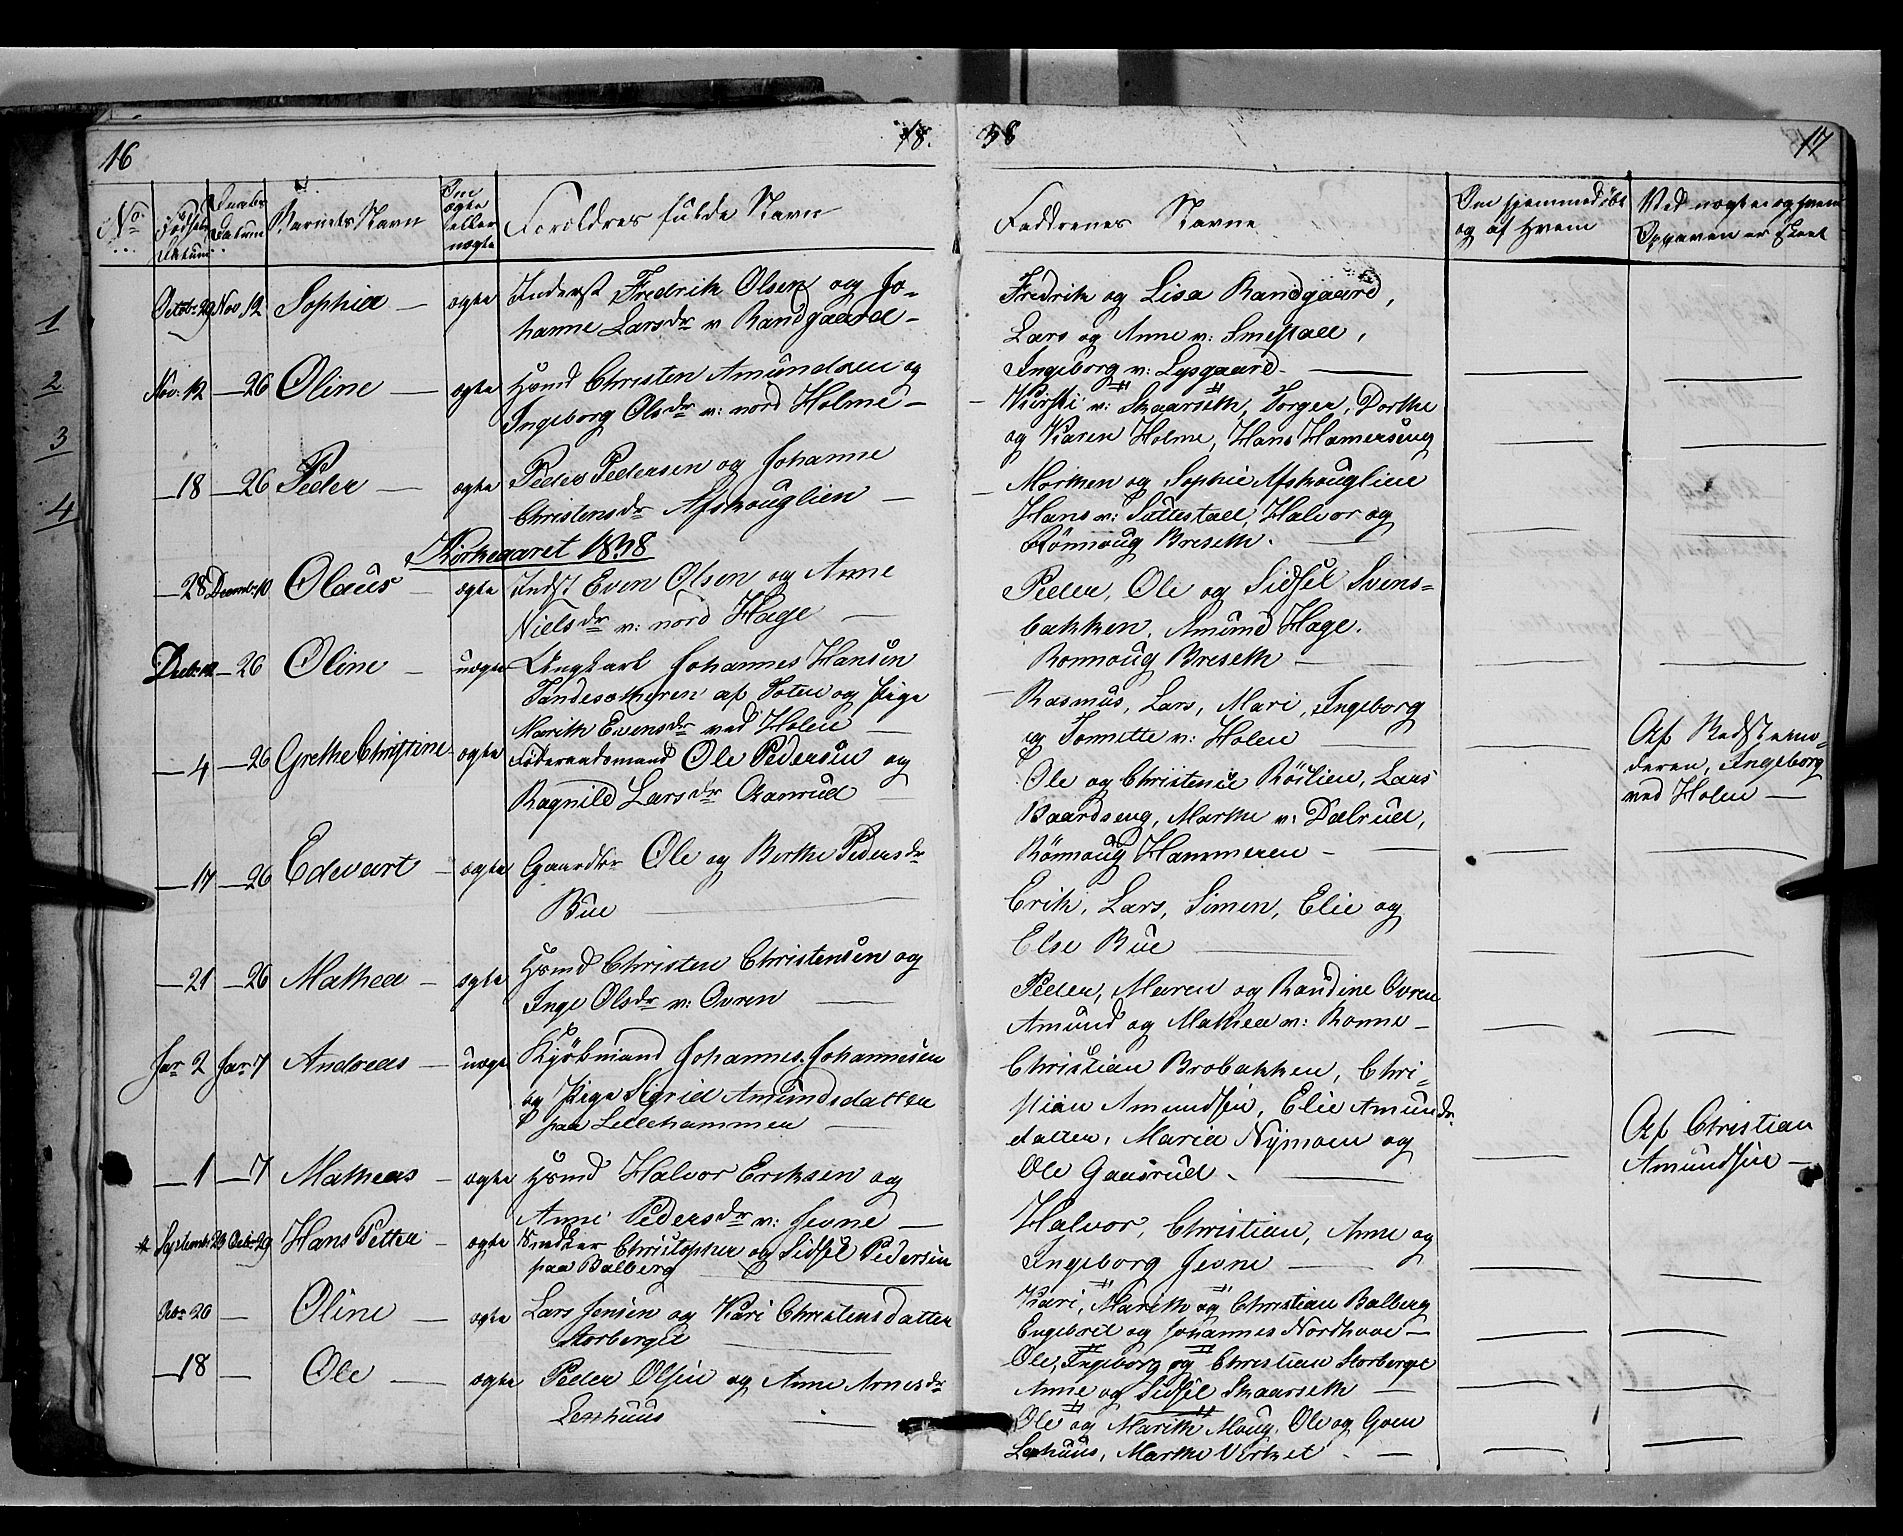 16
18.
38
17
No
Fødsels Datum
Daabs Datum
Barnets Navn
Om ægte eller uægte
Forældres fulde Navn
Faddrenes Navne
Om hjemmedøbt og af hvem
Ved uægte og hvem Opgaven er skeet
1
2
3
4
Octob: 29 Nov 12 Sophia — ægte Inderst Fredrik Olsen og Jo-
hanne Larsdr v Randgaard —
Fredrik og Lisa Randgaard,
Lars og Anne v: Smestad,
Ingeborg v: Lysgaard —
Nov: 12 — 26 Oline — ægte Hsmd Christen Amundsen og
Ingeborg Olsdr v: nord Holme —
Kirsti v: Skaarseth, Torger, Dorthe
og Karen Holme, Hans Hamerseng
— 18 — 26 Peder — ægte Peder Pedersen og Johanne
Christensdr Afskouglien —
Morthen og Sophie Afskouglien
Hans v: Sattestad, Halvor og
Rønnoug Breseth.
Kirkeaaret 1838
— 28 Decemb: 10 Olaus — ægte Indst Even Olsen og Anne
Nielsdr v: nord Hage —
Peder, Ole og Sidsel Svens-
bakken, Amund Hage.
Ronnoug Breseth —
— 26 Oline — uægte Ungkarl Johannes Hansen
af Toten og Pige
Marith Evensdr ved Holen —
Rasmus, Lars, Mari, Ingeborg
og Tonnette v: Holen
Af Bedstemo-
deren, Ingeborg
ved Holen —
— 4 — 26 Grethe Christine ægte Føderaadsmand Ole Pedersen og
Ragnild Larsdr Aanrud —
Ole og Christense Røislien, Lars
Baardseng, Marthe v: Dalrud,
Rønnoug Hammeren —
— 17 — 26 Edevart — ægte Gaardbr Ole og Berthe Pedersdr
Bue —
Erik, Lars, Simen, Elie og
Else Bue —
— 21 — 26 Mathea — ægte Hsmd Christen Christensen og
Inge Olsdr v: Ovren —
Peder, Maren og Randine Ovren
Amund og Mathea v: Ronne —
Jar 2 Jar 7 Andreas — uægte Kjøbmand Johannes Johannesen
og Pige Sigrid Amundsdatter
paa Lillehammer —
Christian Brobakken, Chri-
stian Amundsen, Elie Amunds-
datter, Maria Nymoen og
Ole Gaasrud. —
Af Christian
Amundsen —
— 1 — 7 Matheas — ægte Hsmd Halvor Eriksen og
Anne Pedersdr v: Jevne —
Halvor, Christian, Anne og
Ingeborg Jevne —
Septemb: 23 Octb: 29 Hans Petter — ægte Snedker Christopher og Sidsel Pedersen
paa Balberg
Kari, Marith og Christian Balberg
Engebret og Johannes Nordhove —
Octbr 20 — Oline — ægte Lars Jensen og Kari Christensdatter
Storberget
Ole, Ingeborg og Christian Storberget
Anne og Sidsel Skaarseth —
— 18 — Ole — ægte Peder Olsen og Anne Arnesdr
Lenhuus
Ole og Marith Moug, Ole og Goen
Lenhuus, Marthe Virket —